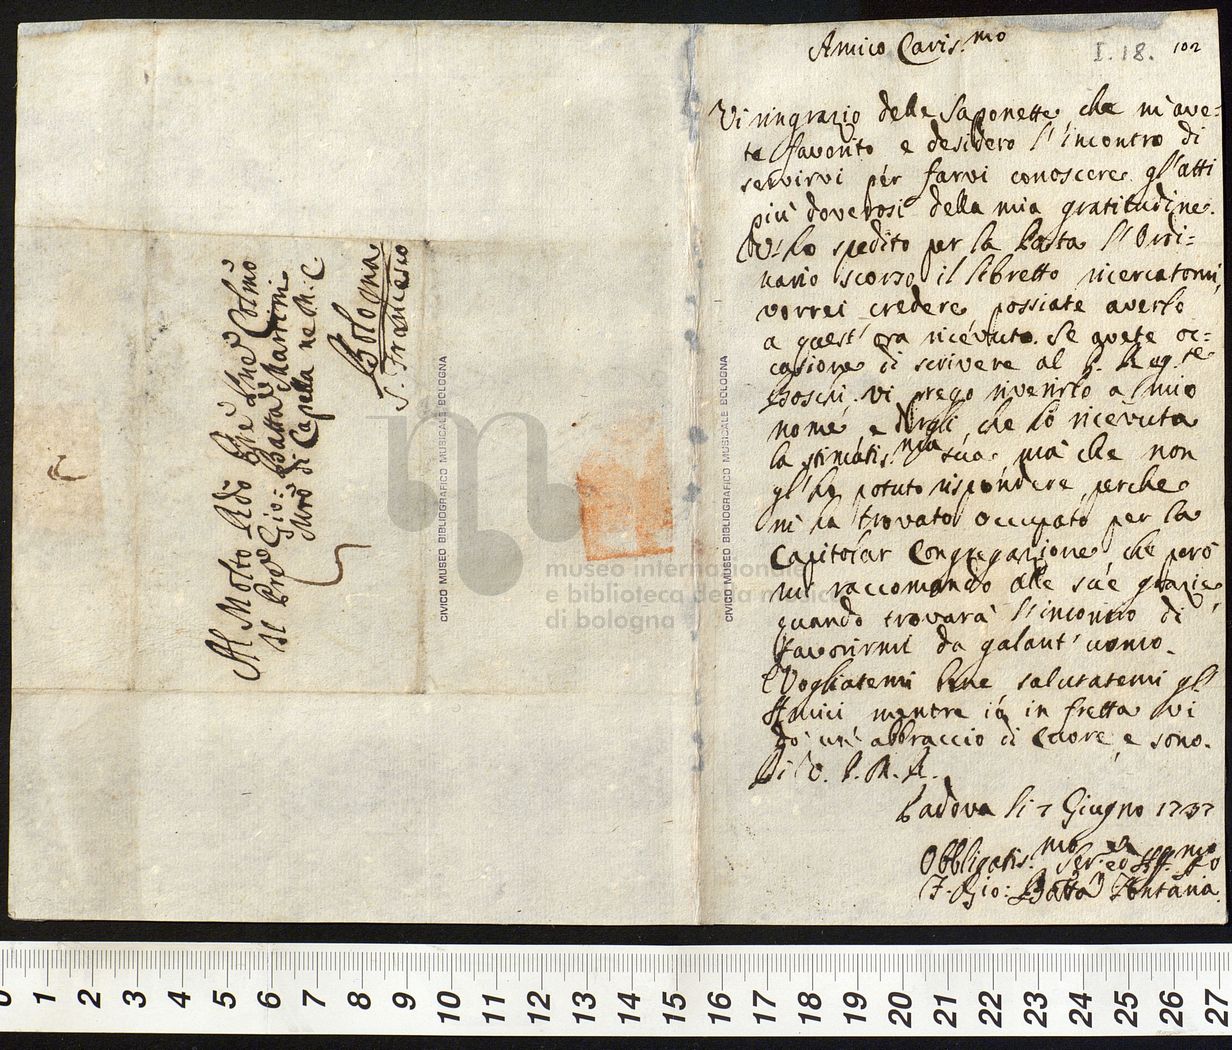 Amico Caris.mo
I. 18. 102
Vi ringrazio delle Saponette, che m'ave-
te favorito e desidero l'incontro di
servirvi per farvi conoscere gl'atti
più doverosi della mia gratitudine.
Vi ho spedito per la Posta l'Ordi=
nario scorso il libretto ricercatomi,
vorrei credere possiate averlo
a quest' ora ricevuto. Se avete oc=
casione di scrivere al P. Regg.te
vi prego riverirlo a mio
nome, e dirgli, che hò ricevuta
la stimatis.ma sua, mà che non
gl'hò potuto rispondere, perche
m'hà trovato occupato per la
Capitolar Congregazione, che però
mi raccomando alle sue grazie
quando trovarà l'incontro di
favorirmi da galant'uomo.
Vogliatemi bene, salutatemi gl'
Amici mentre io in fretta vi
dò un' abbraccio di cuore, e sono.
Di V. P. M. R.
Padova li 7 Giugno 1737
Obbligatis.mo Ser.e ed Aff.mo
F. Gio: Batta Fontana.
Al Molto Rdo Pre Pne Colmo
Il Pre Gio: Batta Martini
Mro di Capella ne M. C.
Bologna
S. Francesco
CIVICO MUSEO BIBLIOGRAFICO MUSICALE BOLOGNA
CIVICO MUSEO BIBLIOGRAFICO MUSICALE BOLOGNA
museo internazionale
e biblioteca della musica
di bologna
0 1 2 3 4 5 6 7 8 9 10 11 12 13 14 15 16 17 18 19 20 21 22 23 24 25 26 27